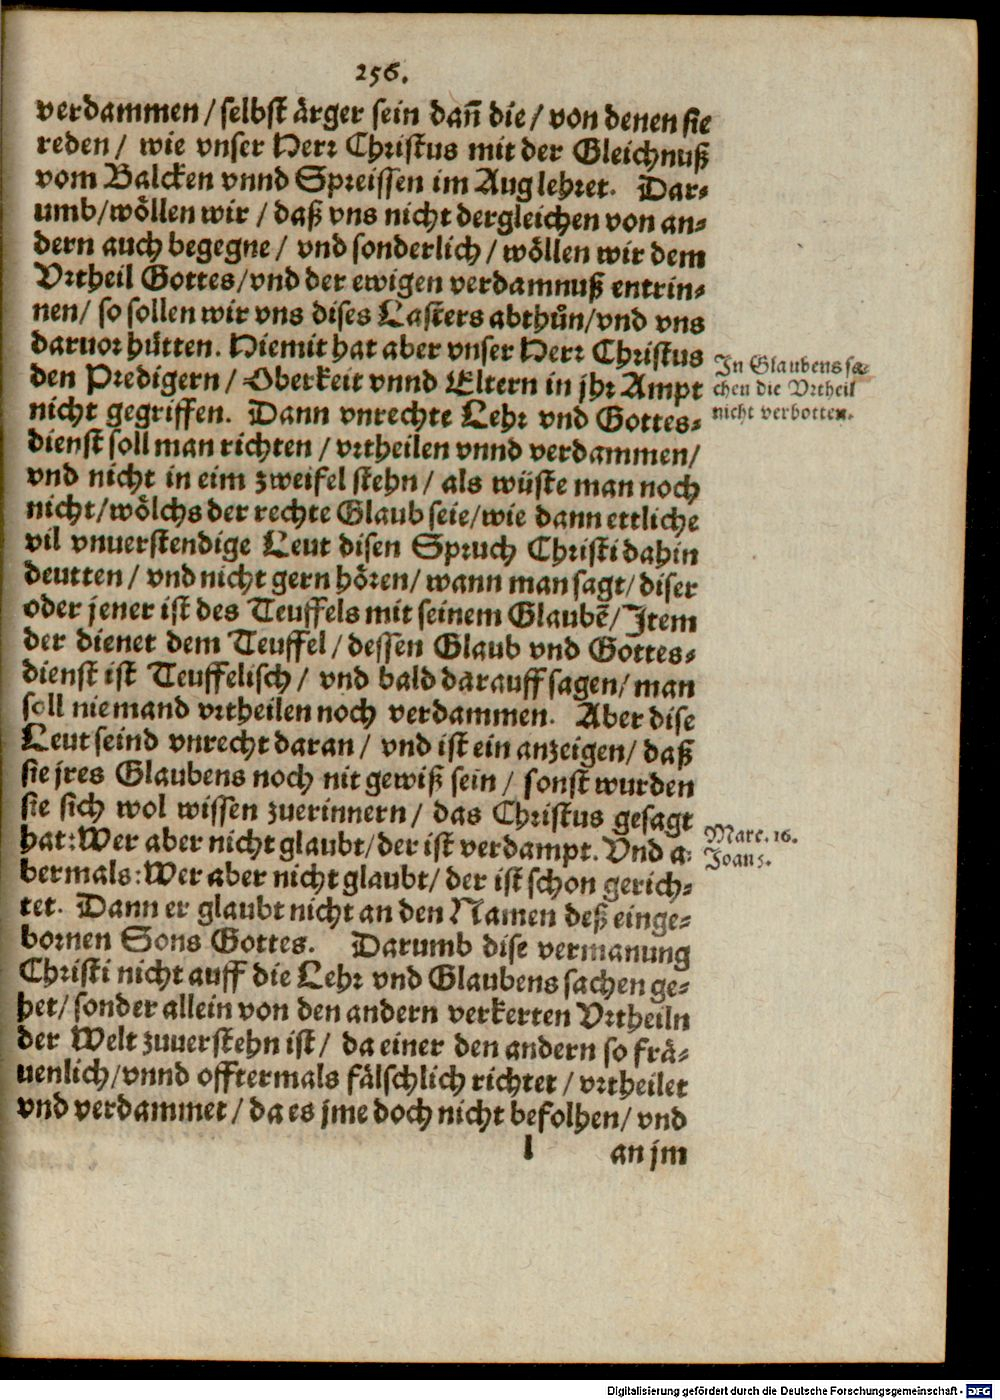 256.
verdammen / selbst ärger sein dañ die / von denen sie
reden / wie vnser Herr Christus mit der Gleichnuß
vom Balcken vnnd Spreissen im Aug lehret. Dar-
umb / wöllen wir / daß vns nicht dergleichen von an-
dern auch begegne / vnd sonderlich / wöllen wir dem
Vrtheil Gottes / vnd der ewigen verdamnuß entrin-
nen / so sollen wir vns dises Lasters abthůn / vnd vns
daruor hütten. Hiemit hat aber vnser Herr Christus
den Predigern / Oberkeit vnnd Eltern in jhr Ampt
nicht gegriffen. Dann vnrechte Lehr vnd Gottes-
dienst soll man richten / vrtheilen vnnd verdammen /
vnd nicht in eim zweifel stehn / als wüste man noch
nicht / wölchs der rechte Glaub seie / wie dann ettliche
vil vnuerstendige Leut disen Spruch Christi dahin
deutten / vnd nicht gern hören / wann man sagt / diser
oder jener ist des Teuffels mit seinem Glaubẽ / Item
der dienet dem Teuffel / dessen Glaub vnd Gottes-
dienst ist Teuffelisch / vnd bald darauff sagen / man
soll niemand vrtheilen noch verdammen. Aber dise
Leut seind vnrecht daran / vnd ist ein anzeigen / daß
sie jres Glaubens noch nit gewiß sein / sonst wurden
sie sich wol wissen zuerinnern / das Christus gesagt
hat: Wer aber nicht glaubt / der ist verdampt. Vnd a-
bermals: Wer aber nicht glaubt / der ist schon gerich-
tet. Dann er glaubt nicht an den Namen deß einge-
bornen Sons Gottes. Darumb dise vermanung
Christi nicht auff die Lehr vnd Glaubens sachen ge-
het / sonder allein von den andern verkerten Vrtheiln
der Welt zuuerstehn ist / da einer den andern so frä-
uenlich / vnnd offtermals fälschlich richtet / vrtheilet
vnd verdammet / da es jme doch nicht befolhen / vnd
l an jm
In Glaubens sa-
chen die Vrtheil
nicht verbotten.
Marc. 16.
Joan 3.
Digitalisierung gefördert durch die Deutsche Forschungsgemeinschaft - DFG